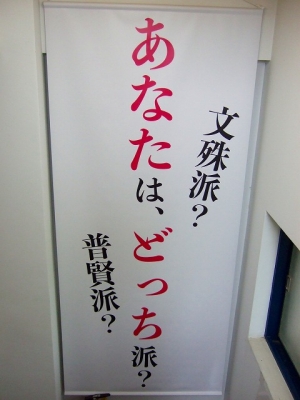 文殊派？
あなたは、どっち派？
普賢派？